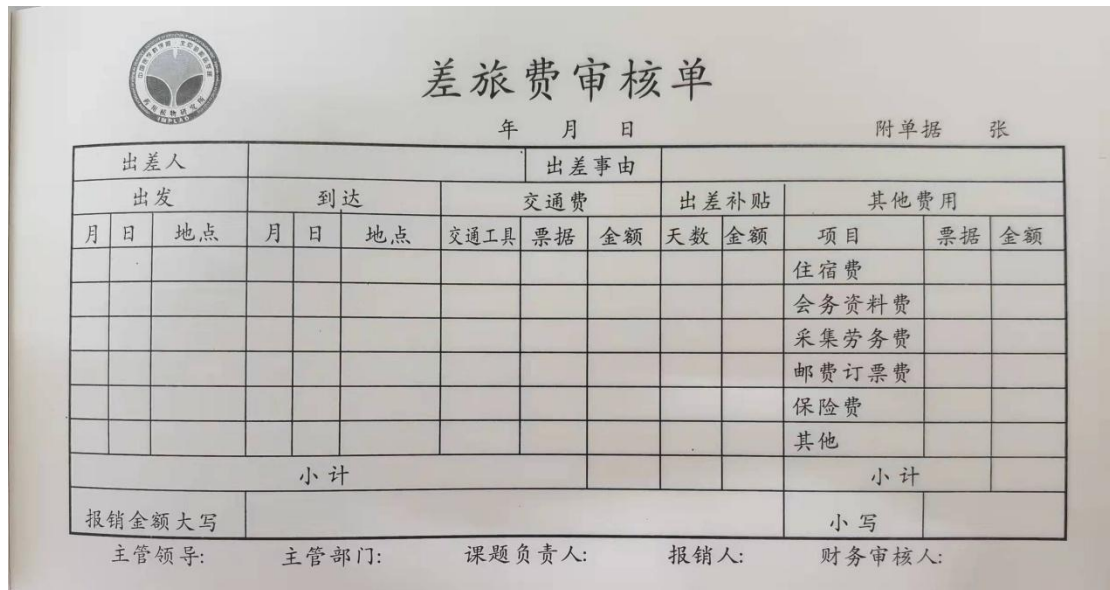 药用植物研究所
IMPLAD
差旅费审核单
年 月 日 附单据 张
出差人 出差事由
出发 到达 交通费 出差补贴 其他费用
月 日 地点 月 日 地点 交通工具 票据 金额 天数 金额 项目 票据 金额
住宿费
会务资料费
采集劳务费
邮费订票费
保险费
其他
小计 小计
报销金额大写 小写
主管领导: 主管部门: 课题负责人: 报销人: 财务审核人: